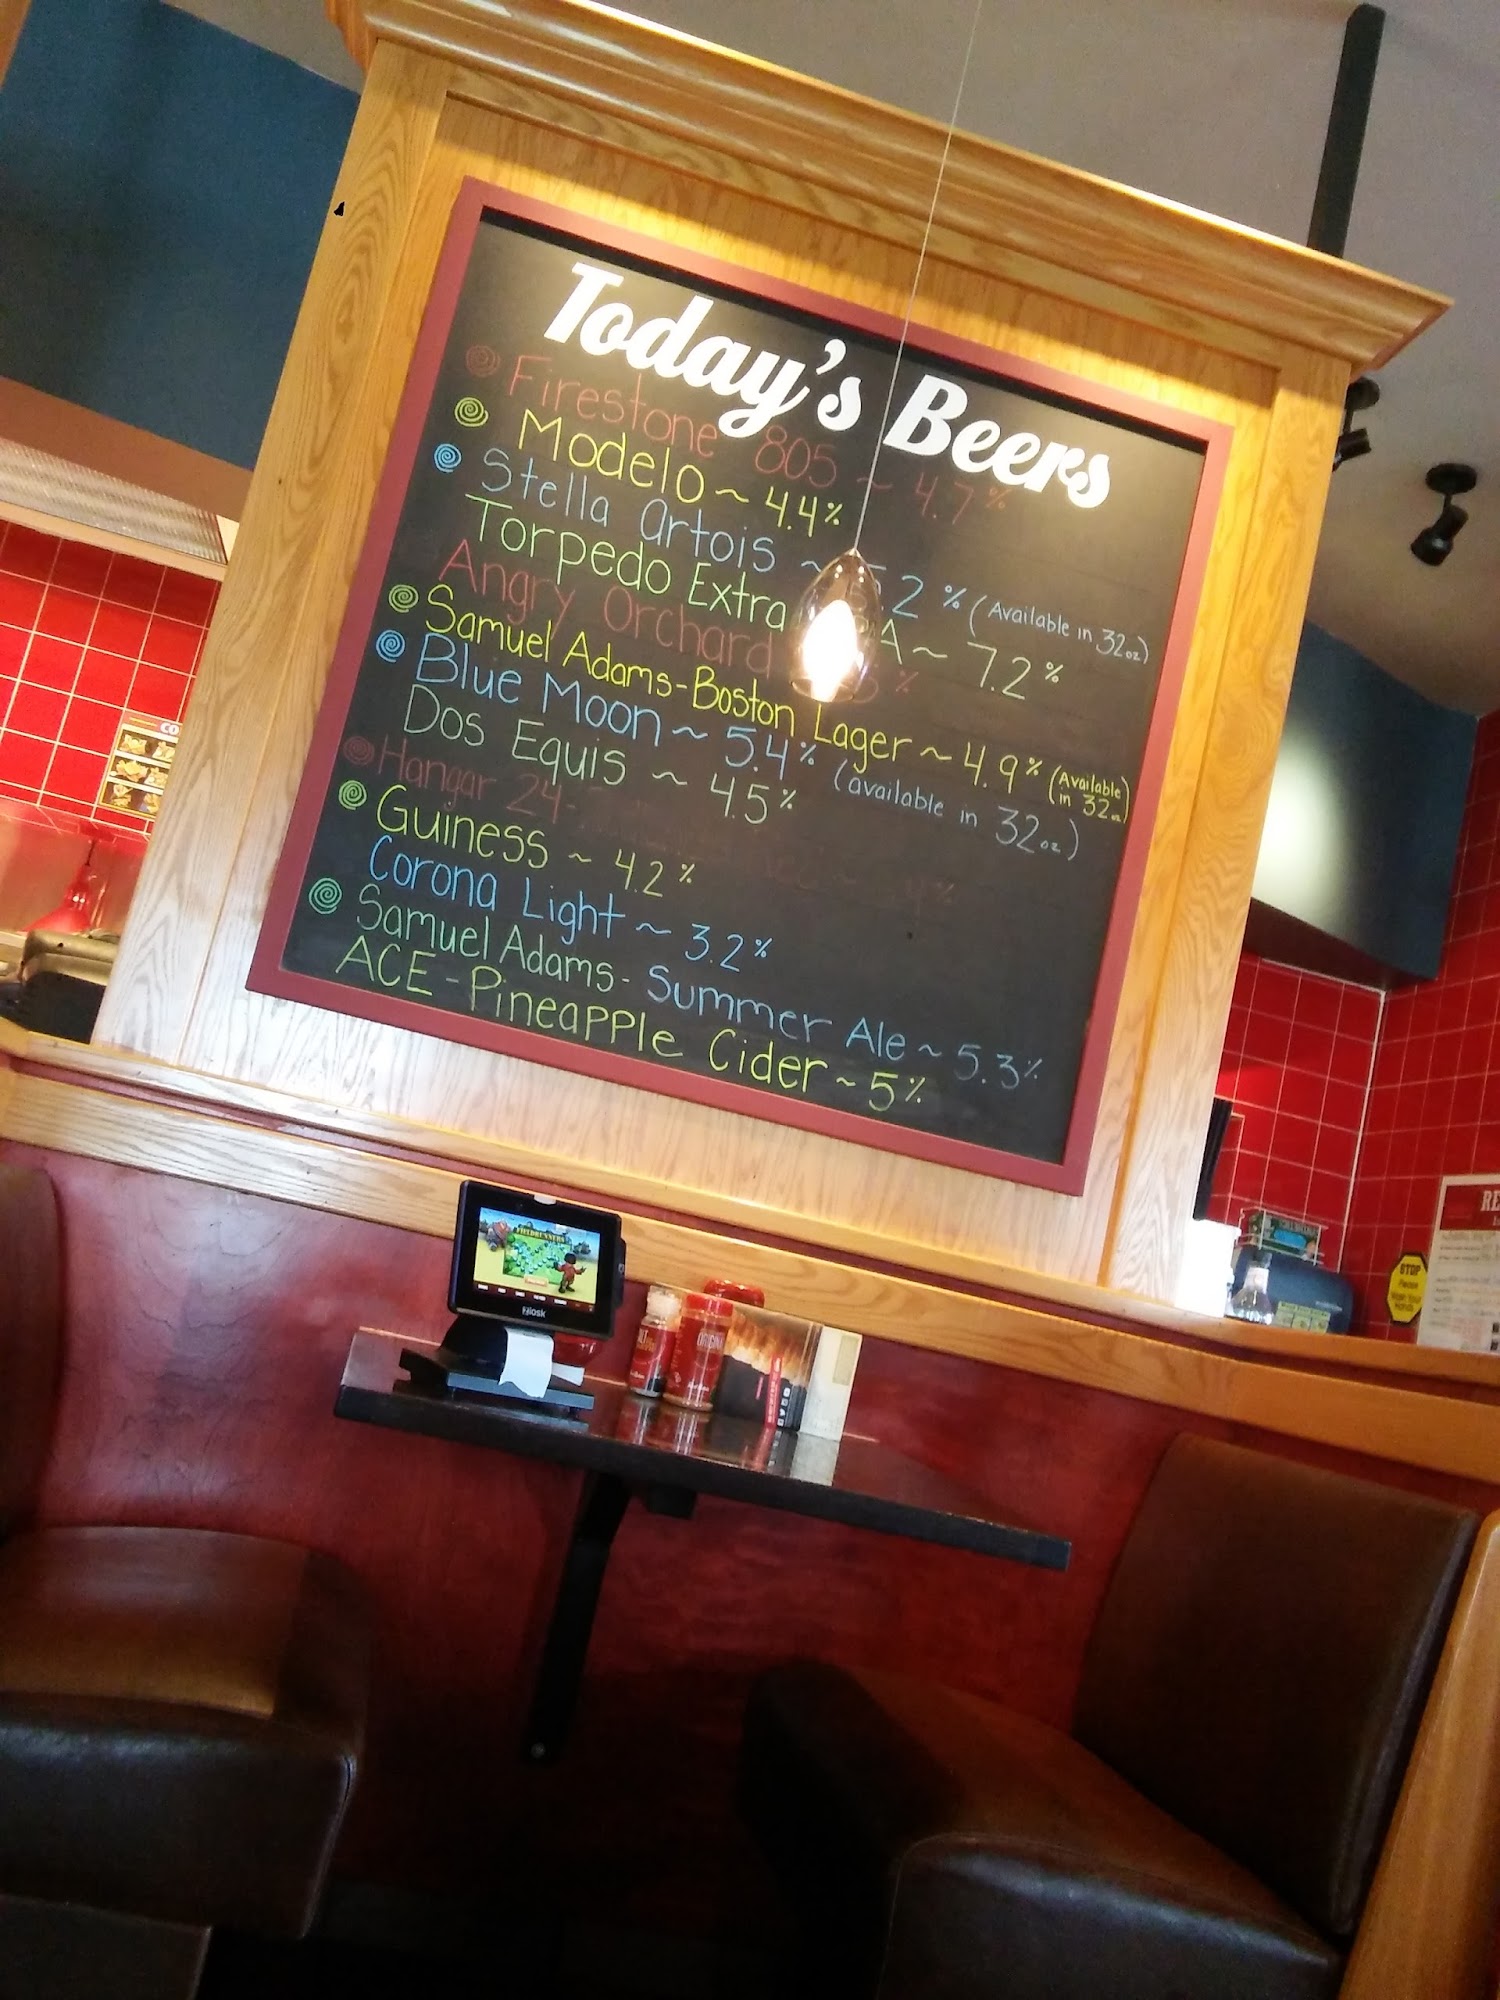 Today's Beers
Firestone 805 ~ 4.7%
Modelo ~ 4.4%
Stella Artois ~ 5.2% (Available in 32oz)
Torpedo Extra ~ 7.2%
Angry Orchard 5%
Samuel Adams-Boston Lager ~ 4.9% (Available in 32oz)
Blue Moon ~ 5.4% (available in 32oz)
Dos Equis ~ 4.5%
Hangar 24-
Guiness ~ 4.2%
Corona Light ~ 3.2%
Samuel Adams- Summer Ale ~ 5.3%
ACE-Pineapple Cider ~ 5%
CO
FIELDRUNNERS
Ziosk
ORIGINAL
STOP
Please
Wash Your
Hands
RE